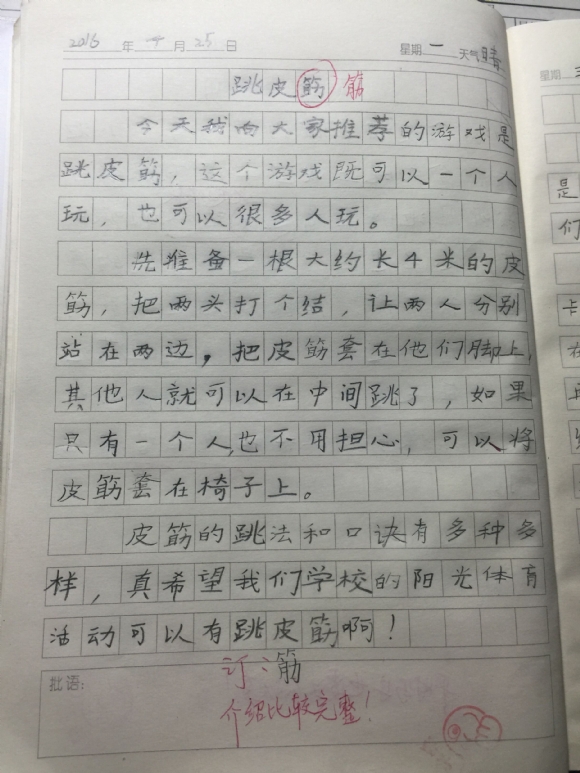 2016 年 4 月 25 日 星期 一 天气 晴
跳皮筋 筋
今天我向大家推荐的游戏是
跳皮筋，这个游戏既可以一个人
玩，也可以很多人玩。
先准备一根大约长4米的皮
筋，把两头打个结，让两人分别
站在两边，把皮筋套在他们脚上，
其他人就可以在中间跳了，如果
只有一个人，也不用担心，可以将
皮筋套在椅子上。
皮筋的跳法和口诀有多种多
样，真希望我们学校的阳光体育
活动可以有跳皮筋啊！
订：筋
批语：
介绍比较完整！
星期
是
们
卡
在